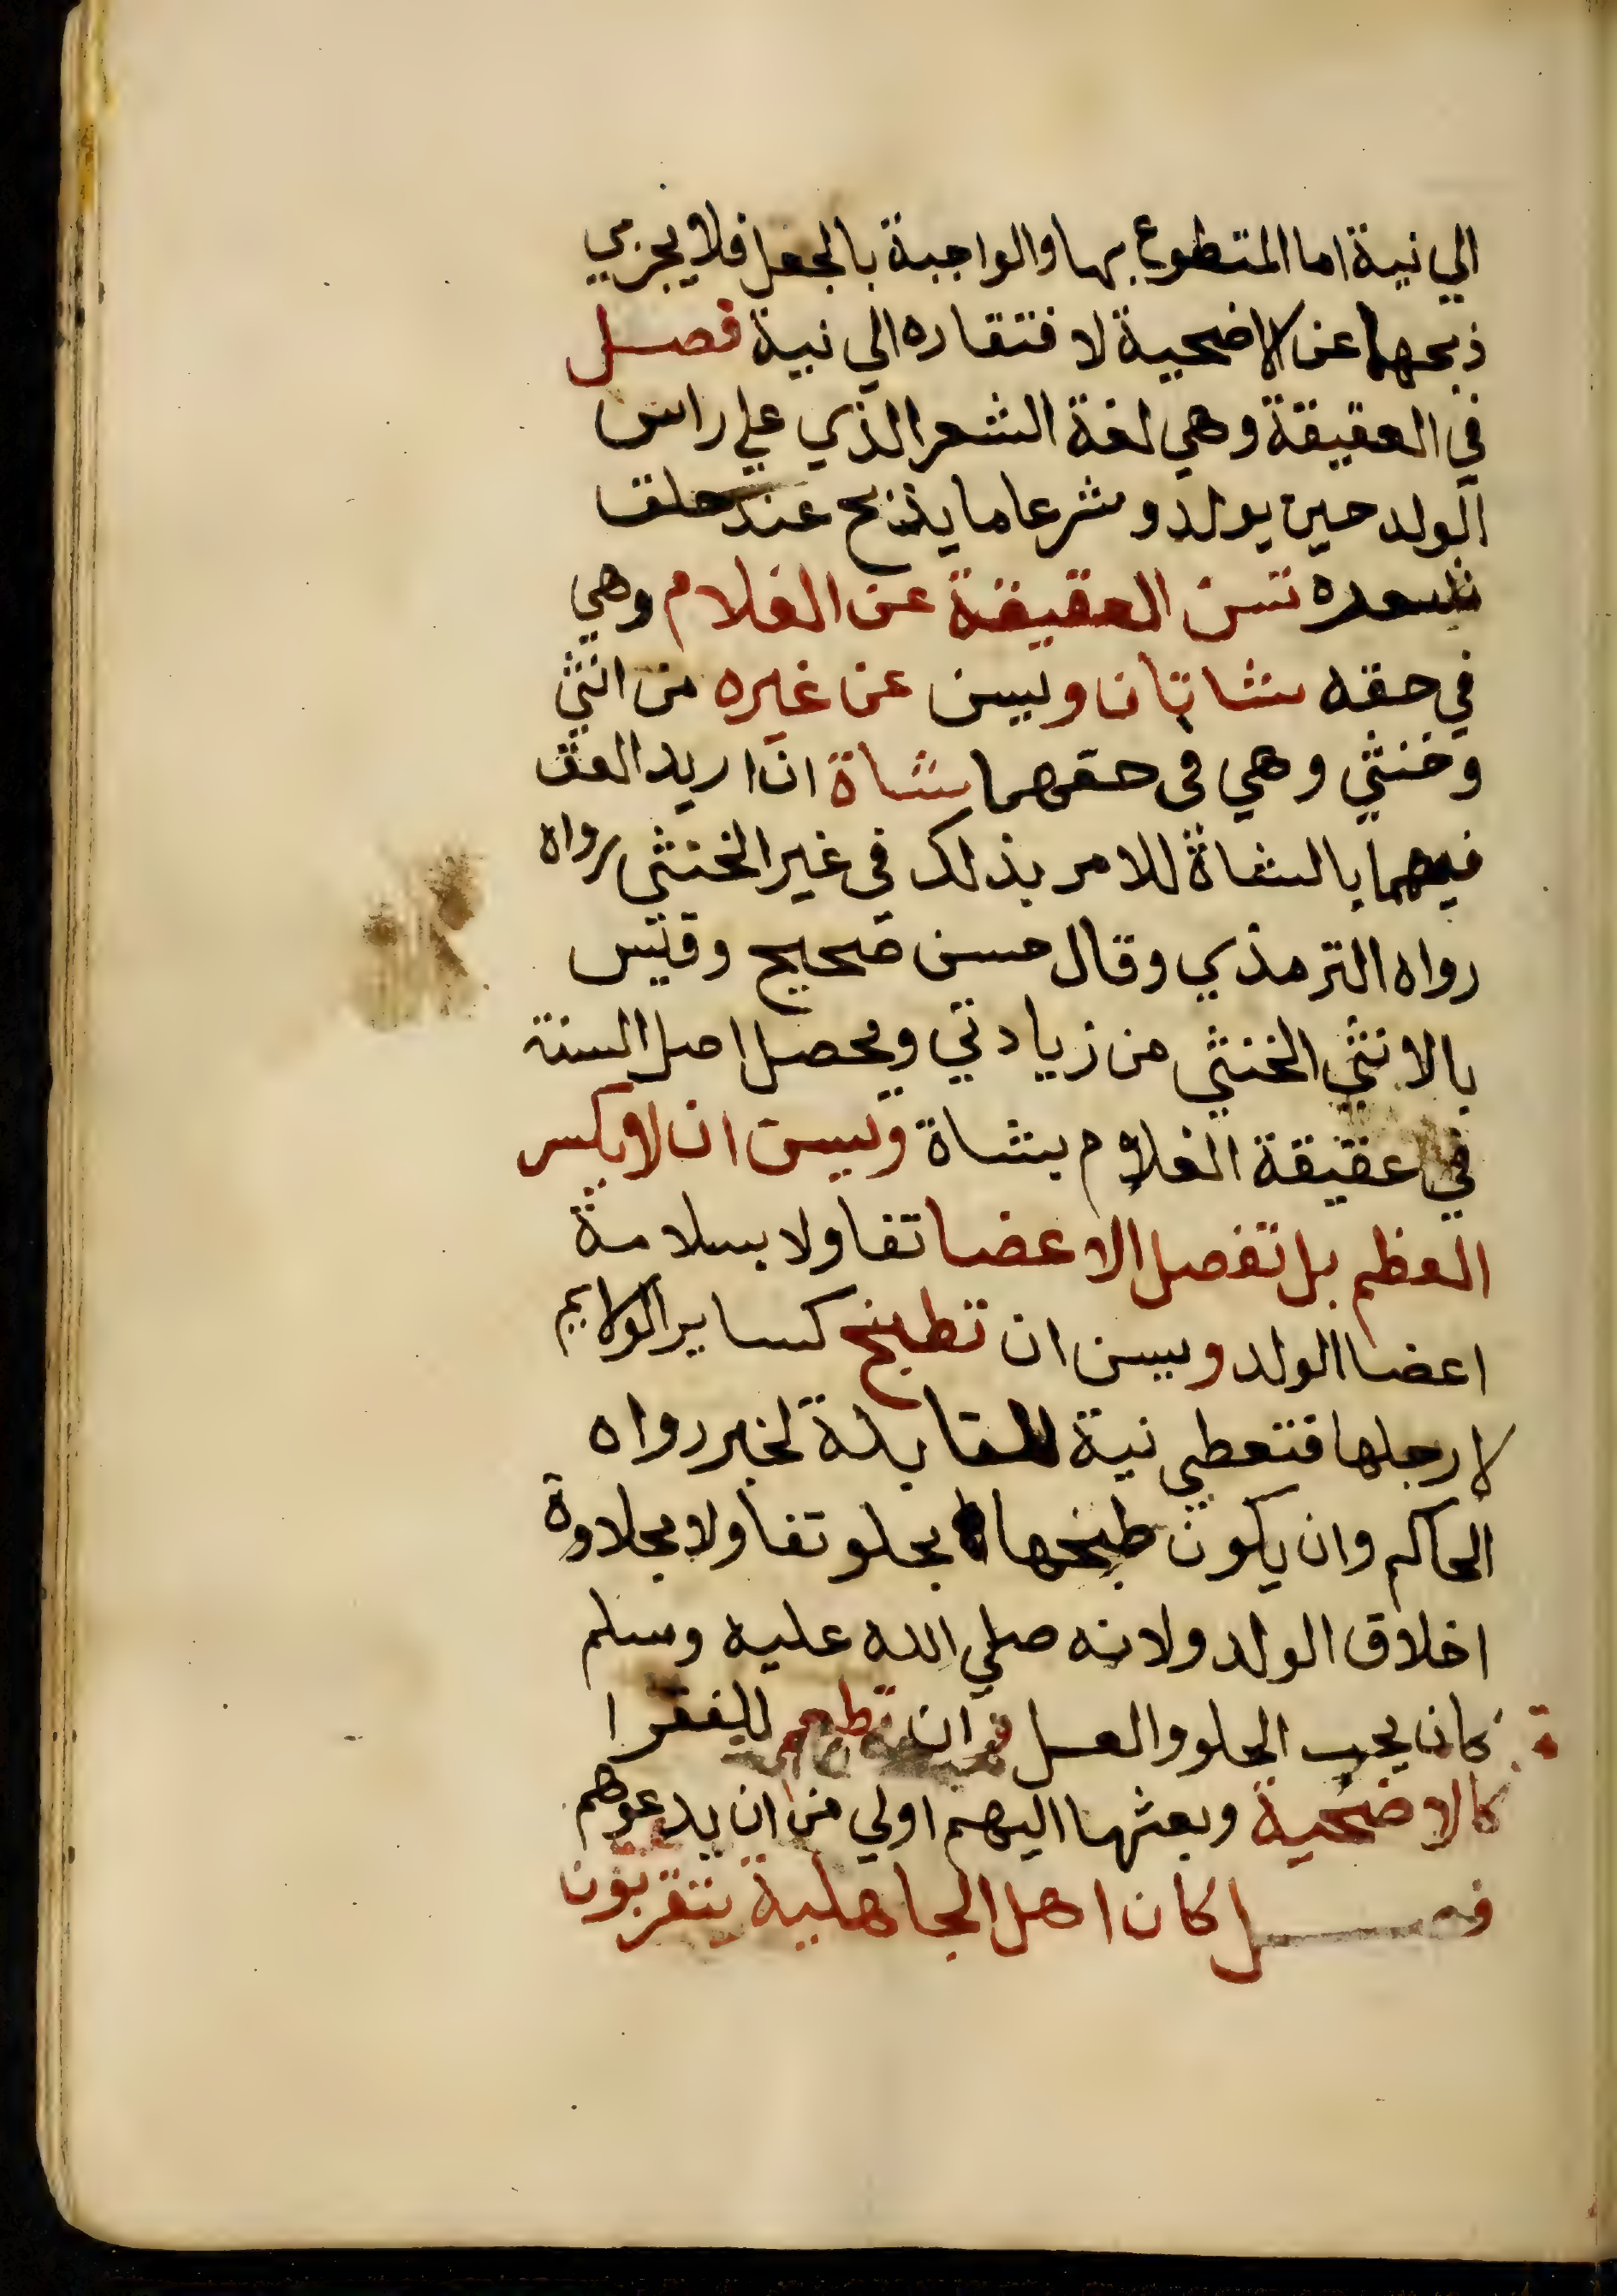 الي نية اما المتطوع بها والواجبة بالجعل فلا يجزي
ذبحها عن الاضحية لافتقاره الي نية فصل
في العقيقة وهي لغة الشعر الذي علي راس
الولد حين يولد وشرعا ما يذبح عند حلق
شعره تسن العقيقة عن الغلام وهي
في حقه شاتان ويسن عن غيره من انثي
وخنثي وهي في حقهما شاة ان اريد العق
فيهما بالشاة للامر بذلك في غير الخنثي رواه
رواه الترمذي وقال حسن صحيح وقيس
بالانثي الخنثي من زيادتي ويحصل اصل السنة
في عقيقة الغلام بشاة ويسن ان لا يكسر
العظم بل تفصل الاعضا تفاولا بسلامة
اعضا الولد ويسن ان تطبخ كساير الولايم
لا رجلها فتعطي نية للقابلة لخبر رواه
الحاكم وان يكون طبخها بحلو تفاولا بحلاوة
اخلاق الولد ولانه صلي الله عليه وسلم
كان يحب الحلو والعسل وان تطعم للفقرا
كالاضحية وبعثها اليهم اولي من ان يدعوهم
فصل كان اهل الجاهلية يتقربون